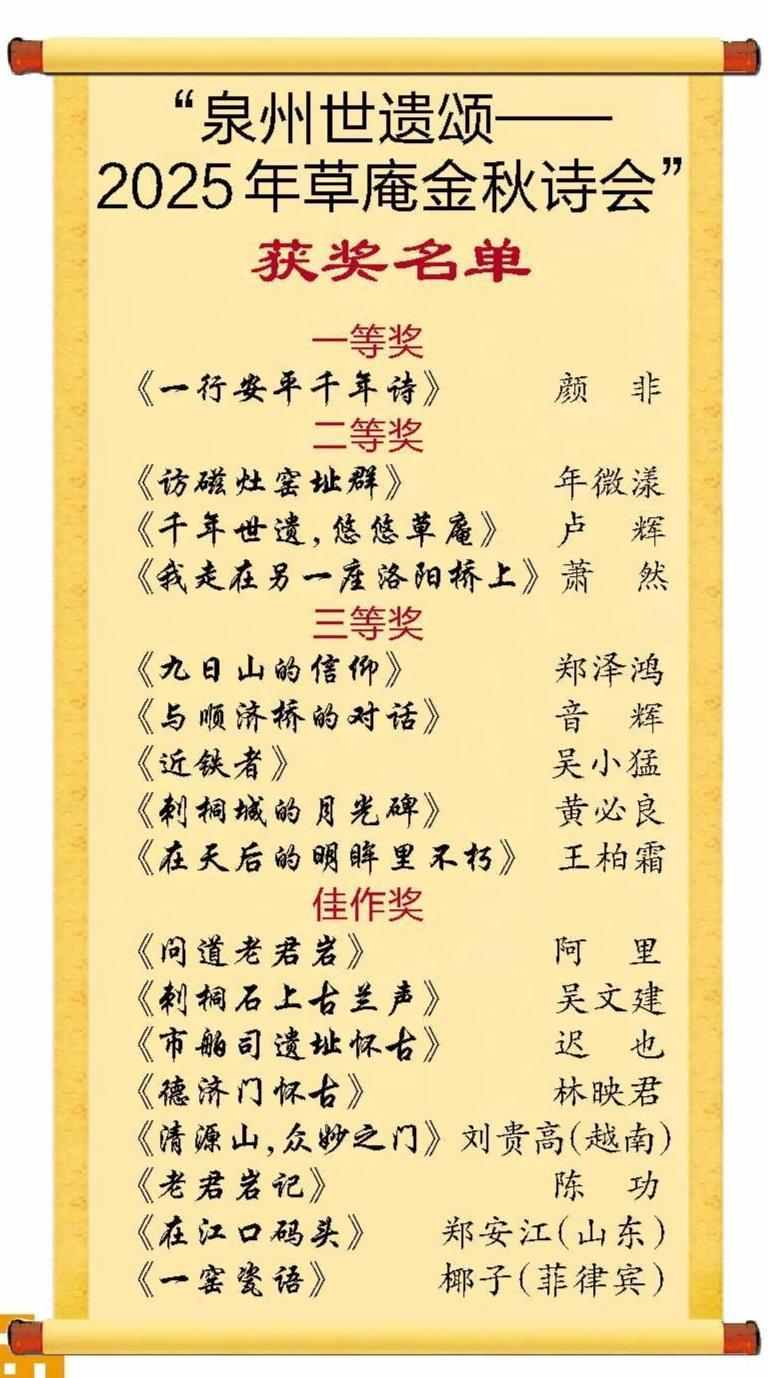 “泉州世遗颂——
2025年草庵金秋诗会”
获奖名单
一等奖
《一行安平千年诗》 颜 非
二等奖
《访磁灶窑址群》 年微漾
《千年世遗,悠悠草庵》 卢 辉
《我走在另一座洛阳桥上》 萧 然
三等奖
《九日山的信仰》 郑泽鸿
《与顺济桥的对话》 音 辉
《近铁者》 吴小猛
《刺桐城的月光碑》 黄必良
《在天后的明眸里不朽》 王柏霜
佳作奖
《问道老君岩》 阿 里
《刺桐石上古兰声》 吴文建
《市舶司遗址怀古》 迟 也
《德济门怀古》 林映君
《清源山,众妙之门》 刘贵高(越南)
《老君岩记》 陈 功
《在江口码头》 郑安江(山东)
《一窑瓷语》 椰子(菲律宾)